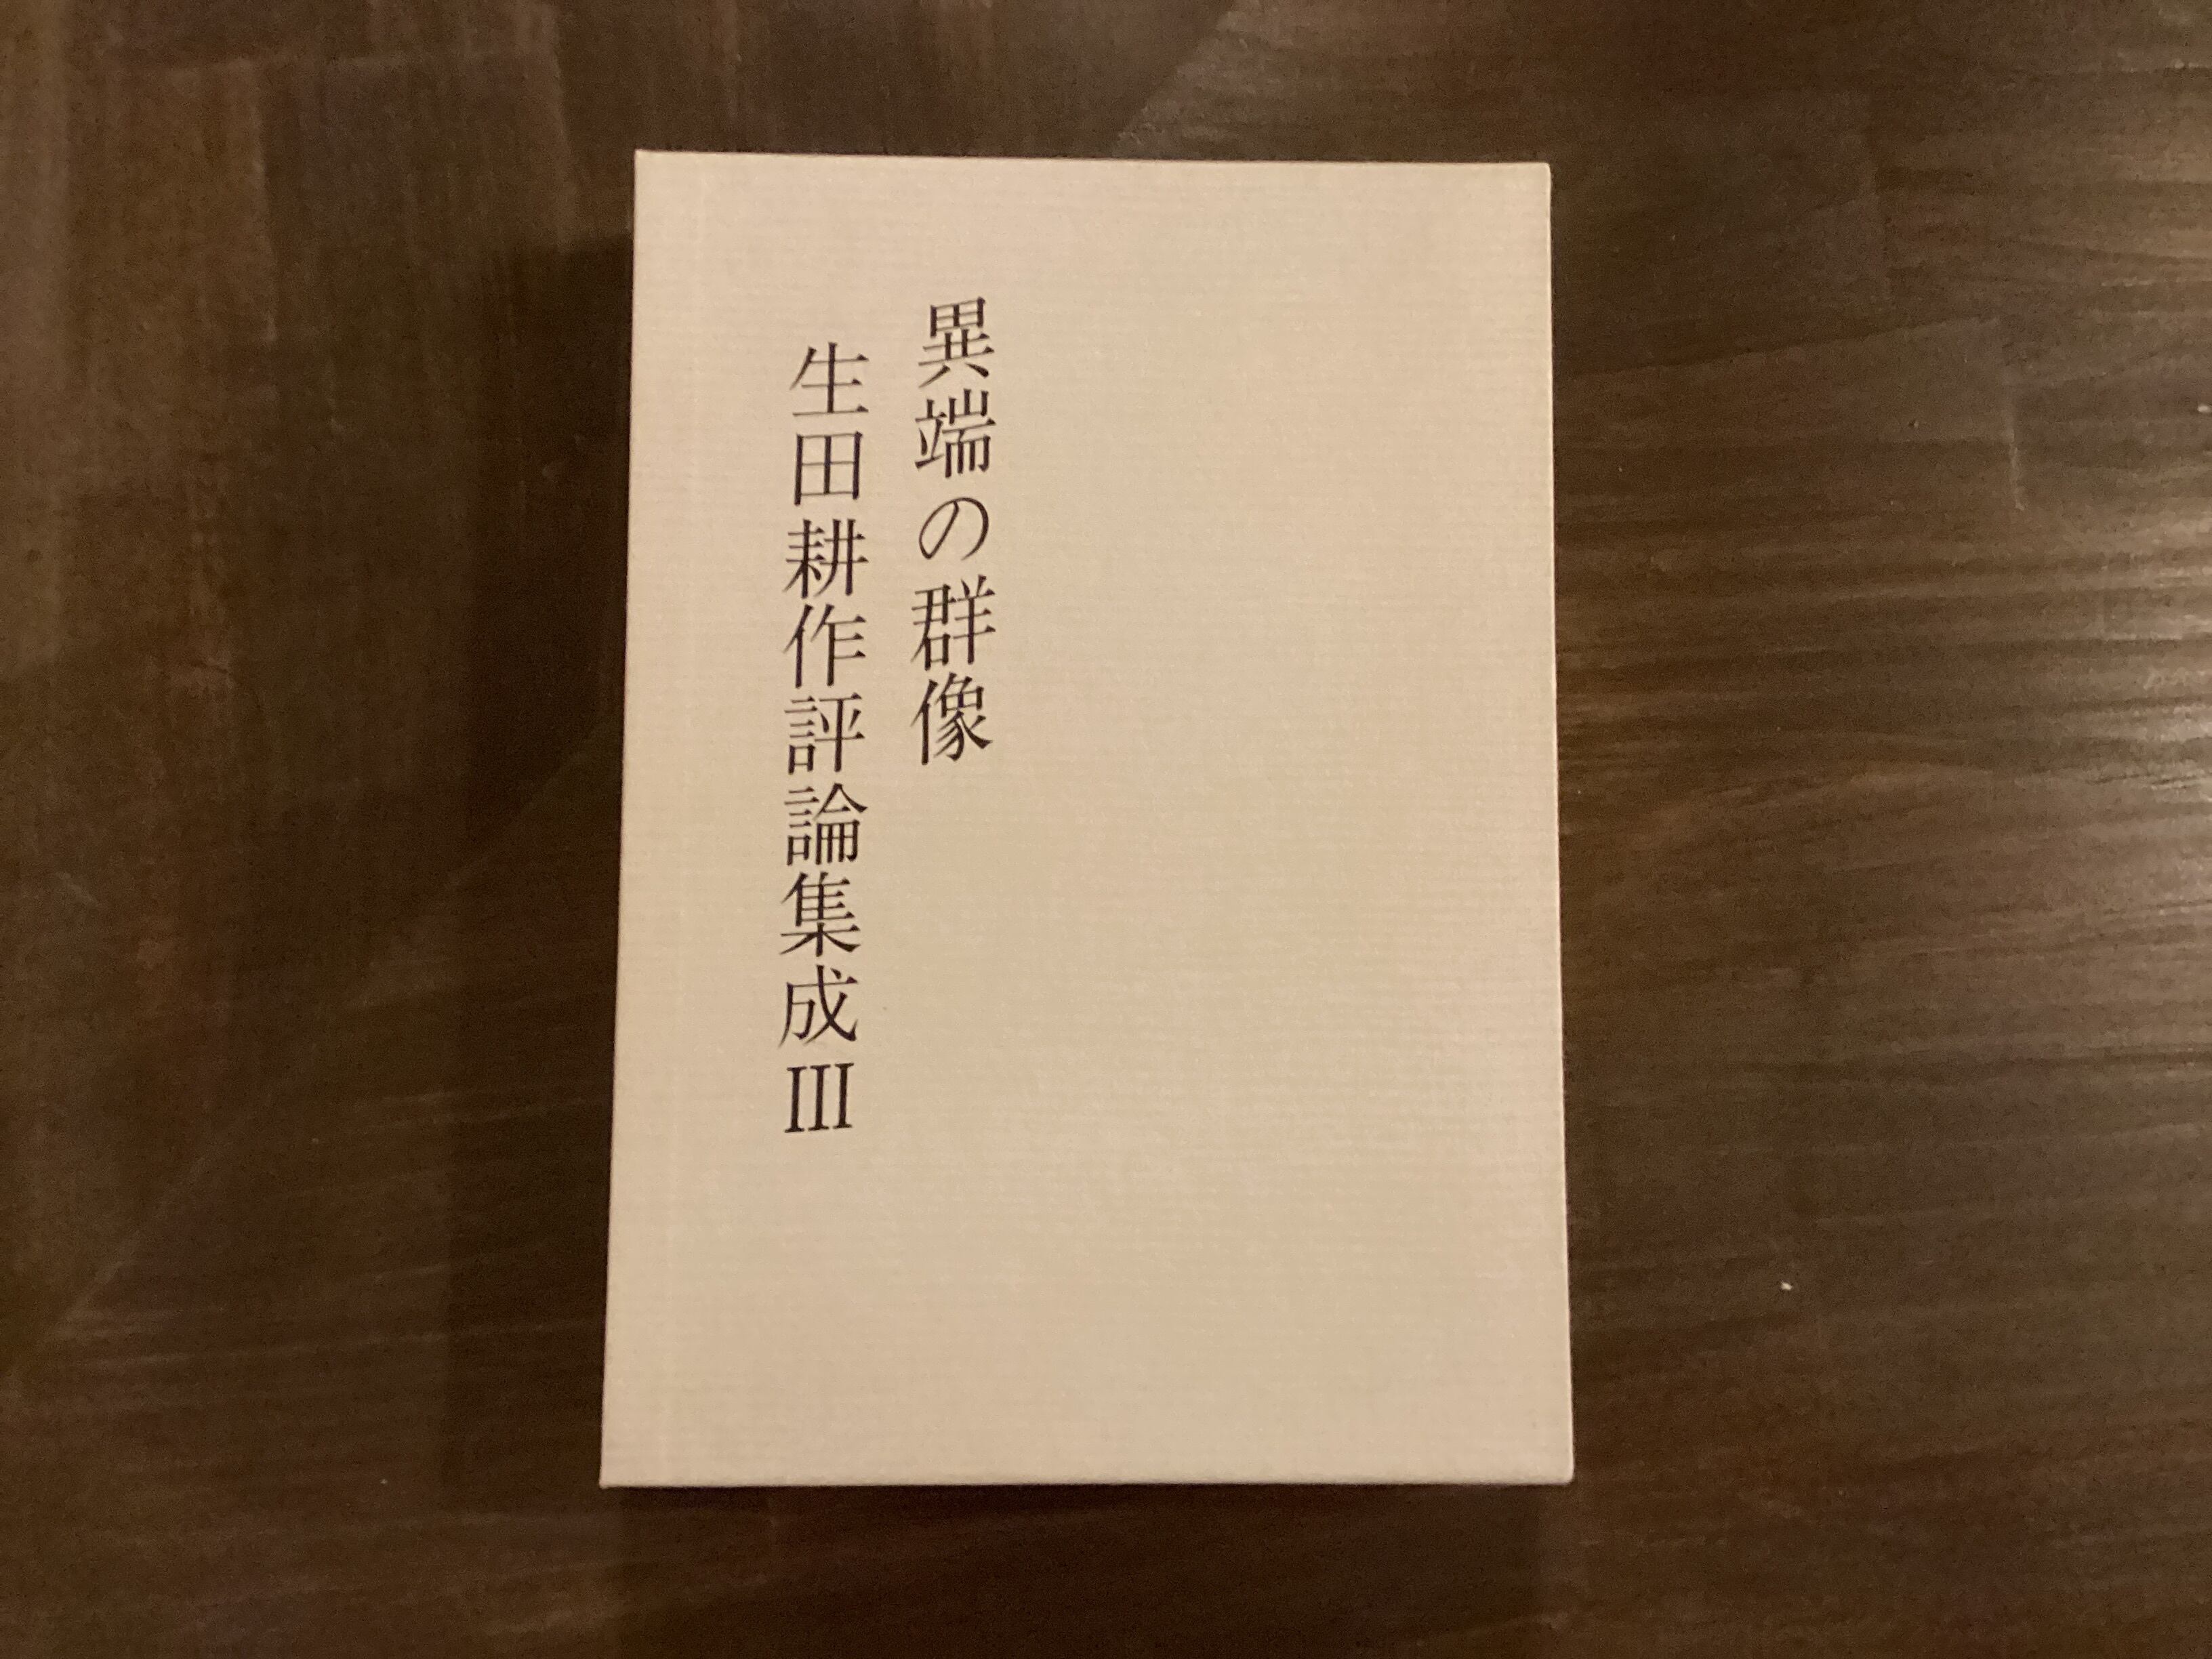 異端の群像
生田耕作評論集成III